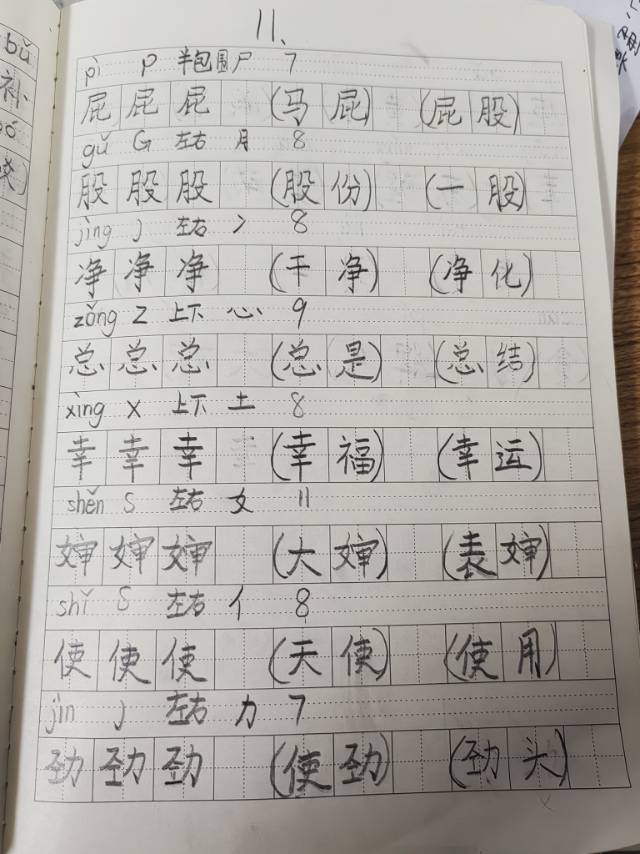 11、
pì P 半包围 尸 7
屁 屁 屁 (马 屁) (屁 股)
gǔ G 左右 月 8
股 股 股 (股 份) (一 股)
jìng J 左右 冫 8
净 净 净 (干 净) (净 化)
zǒng Z 上下 心 9
总 总 总 (总 是) (总 结)
xìng X 上下 土 8
幸 幸 幸 (幸 福) (幸 运)
shěn S 左右 女 11
婶 婶 婶 (大 婶) (表 婶)
shǐ S 左右 亻 8
使 使 使 (天 使) (使 用)
jìn J 左右 力 7
劲 劲 劲 (使 劲) (劲 头)
bǔ
补